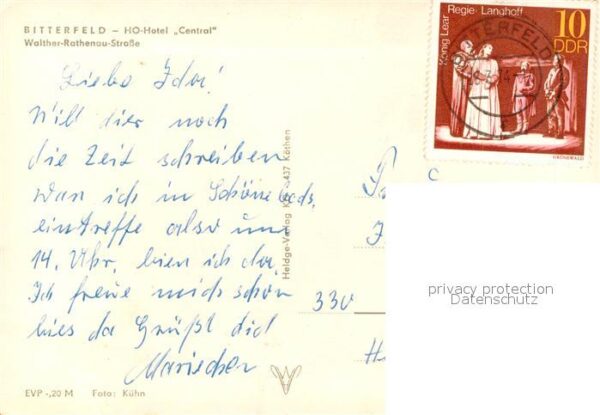 BITTERFELD – HO-Hotel „Central"
Walther-Rathenau-Straße
Liebe Ida!
Will dier noch
die Zeit schreiben
wan ich in Schönebeck,
eintreffe also um
14. Uhr, bien ich da,
Ich freue mich schon
bies da Grüßt did
Mariechen
EVP -,20 M Foto: Kühn
Heldge-Verlag Köthen
König Lear Regie: Langhoff
10
DDR
BITTERFELD
GRÜNEWALD
330
privacy protection
Datenschutz